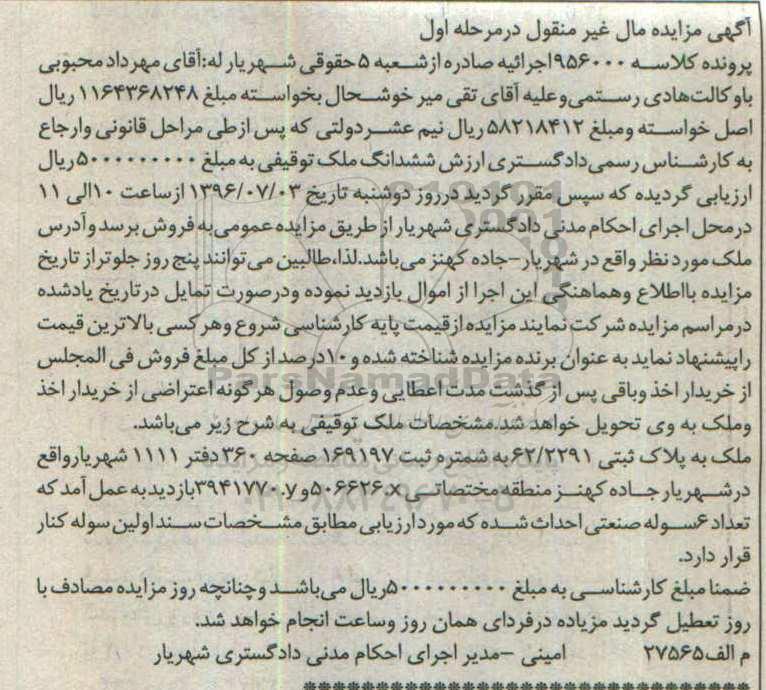 آگهی مزایده مال غیر منقول درمرحله اول
پرونده کلاسه ۹۵۶۰۰۰اجرائیه صادره ازشعبه ۵حقوقی شهریار له:آقای مهرداد محبوبی
باوکالت‌هادی رستمی‌وعلیه آقای تقی میر خوشحال بخواسته مبلغ ۱۱۶۴۳۶۸۲۴۸ ریال
اصل خواسته ومبلغ ۵۸۲۱۸۴۱۲ ریال نیم عشردولتی که پس ازطی مراحل قانونی وارجاع
به کارشناس رسمی‌دادگستری ارزش ششدانگ ملک توقیفی به مبلغ ۵۰۰۰۰۰۰۰۰۰۰ریال
ارزیابی گردیده که سپس مقرر گردید درروز دوشنبه تاریخ ۱۳۹۶/۰۷/۰۳ ازساعت ۱۰الی ۱۱
درمحل اجرای احکام مدنی دادگستری شهریار از طریق مزایده عمومی‌به فروش برسد وآدرس
ملک مورد نظر واقع در شهریار–جاده کهنز می‌باشد.لذا،طالبین می‌توانند پنج روز جلوتراز تاریخ
مزایده بااطلاع وهماهنگی این اجرا از اموال بازدید نموده ودرصورت تمایل درتاریخ یادشده
درمراسم مزایده شرکت نمایند مزایده ازقیمت پایه کارشناسی شروع وهر کسی بالاترین قیمت
راپیشنهاد نماید به عنوان برنده مزایده شناخته شده و۱۰درصد از کل مبلغ فروش فی المجلس
از خریدار اخذ وباقی پس از گذشت مدت اعطایی وعدم وصول هرگونه اعتراضی از خریدار اخذ
وملک به وی تحویل خواهد شد.مشخصات ملک توقیفی به شرح زیر می‌باشد.
ملک به پلاک ثبتی ۶۲/۲۲۹۱ به شمتره ثبت ۱۶۹۱۹۷ صفحه ۳۶۰ دفتر ۱۱۱۱ شهریارواقع
درشهریار جاده کهنز منطقه مختصاتی ۵۰۶۶۲۶.x و ۳۹۴۱۷۷۰.y بازدید به عمل آمد که
تعداد ۶سوله صنعتی احداث شده که مورد ارزیابی مطابق مشخصات سند اولین سوله کنار
قرار دارد.
ضمنا مبلغ کارشناسی به مبلغ ۵۰۰۰۰۰۰۰۰۰۰ریال می‌باشد وچنانچه روز مزایده مصادف با
روز تعطیل گردید مزیاده درفردای همان روز وساعت انجام خواهد شد.
م الف۲۷۵۶۵ امینی –مدیر اجرای احکام مدنی دادگستری شهریار
ParsNamadData